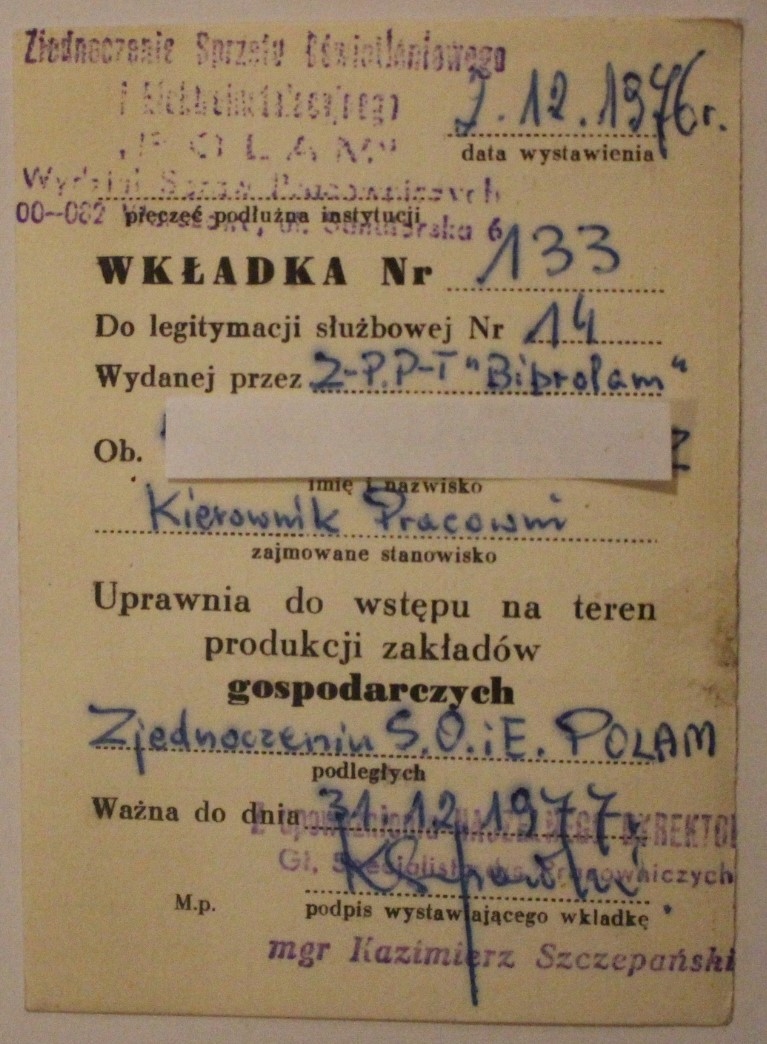 Zjednoczenie Sprzętu Oświetleniowego
i Elektroinstalacyjnego
"POLAM"
Wydział Spraw Pracowniczych
00-082 Warszawa, ul. Senatorska 6
7.12.1976r.
data wystawienia
pieczęć podłużna instytucji
WKŁADKA Nr 133
Do legitymacji służbowej Nr 14
Wydanej przez Z-P.P-T "Biprolam"
Ob.
imię i nazwisko
Kierownik Pracowni
zajmowane stanowisko
Uprawnia do wstępu na teren
produkcji zakładów
gospodarczych
Zjednoczeniu S.O.iE. POLAM
podległych
Ważna do dnia 31.12.1977r
Z upoważnienia NACZELNEGO DYREKTO
Gł. Specjalista Pracowniczych
M.p.
podpis wystawiającego wkładkę
mgr Kazimierz Szczepański